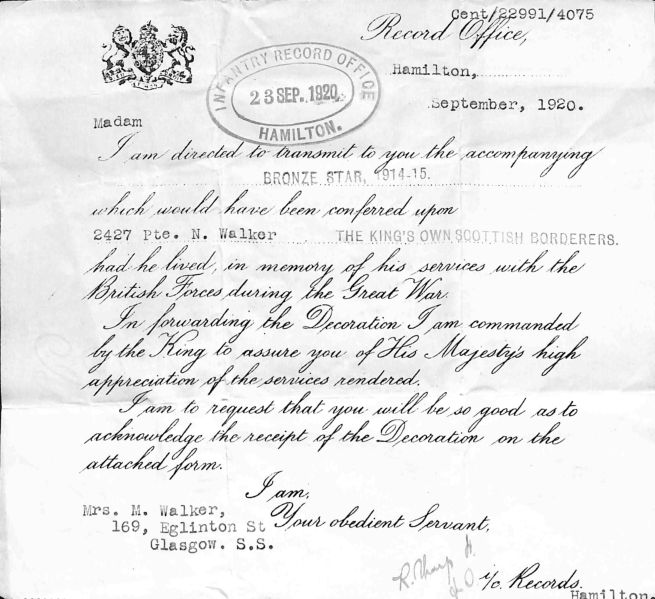 Cent/22991/4075
Record Office,
Hamilton,
September, 1920.
INFANTRY RECORD OFFICE
23 SEP. 1920
HAMILTON.
Madam
I am directed to transmit to you the accompanying
BRONZE STAR, 1914-15.
which would have been conferred upon
2427 Pte. N. Walker THE KING'S OWN SCOTTISH BORDERERS.
had he lived, in memory of his services with the
British Forces during the Great War.
In forwarding the Decoration I am commanded
by the King to assure you of His Majesty's high
appreciation of the services rendered.
I am to request that you will be so good as to
acknowledge the receipt of the Decoration on the
attached form.
I am,
Your obedient Servant,
Mrs. M. Walker,
169, Eglinton St
Glasgow. S.S.
i/c. Records.
Hamilton.